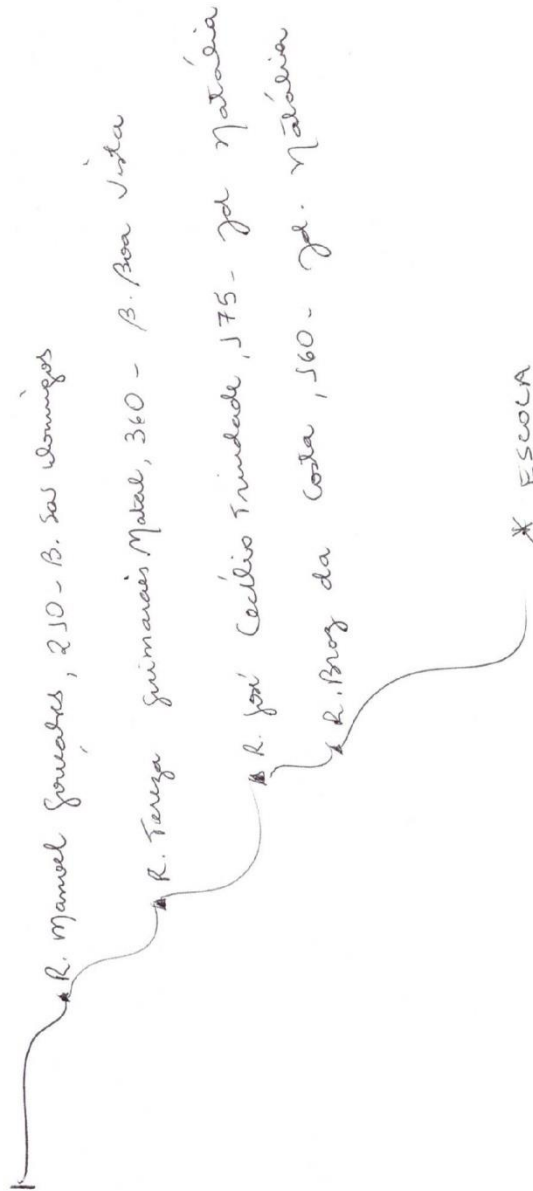 R. Manoel Gonçalves, 210 - B. São Domingos
R. Tereza Guimarães Matal, 360 - B. Boa Vista
R. José Cecílio Trindade, 175 - Jd Natália
R. Braz da Costa, 160 - Jd. Natália
* ESCOLA